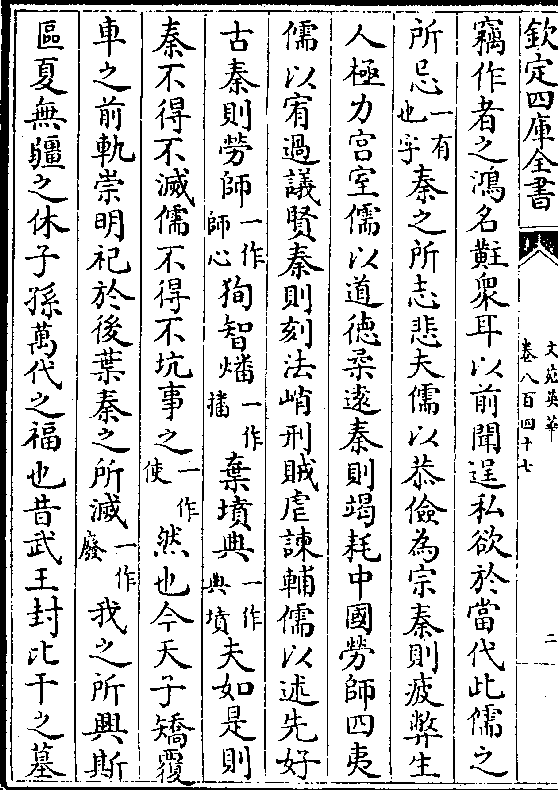 欽定四庫全書
文苑英華
卷八百四十七
二
竊作者之鴻名黈衆耳以前聞逞私欲於當代此儒之
所忌一有也字秦之所志悲夫儒以恭儉為宗秦則疲弊生
人極力宫室儒以道德柔逺秦則竭耗中國勞師四夷
儒以宥過議賢秦則刻法峭刑賊虐諫輔儒以述先好
古秦則勞師一作師心狥智燔一作播棄墳典一作典墳夫如是則
秦不得不滅儒不得不坑事之一作使然也今天子矯覆
車之前軌崇明祀於後葉秦之所滅一作廢我之所興斯
區夏無疆之休子孫萬代之福也昔武王封比干之墓